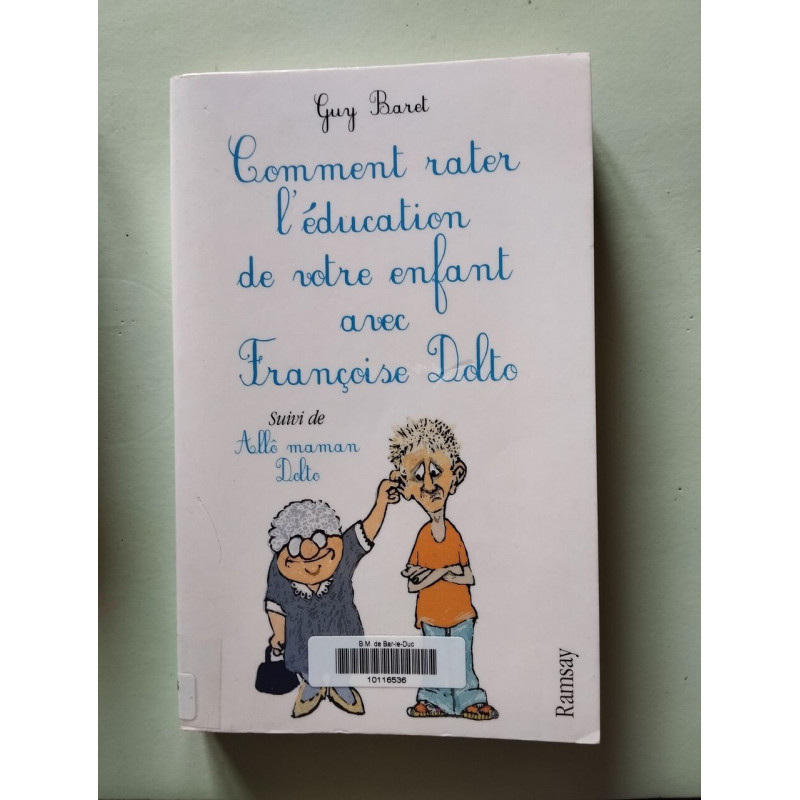 Guy Baret
Comment rater
l'éducation
de votre enfant
avec
Françoise Dolto
Suivi de
Allô maman
Dolto
B.M. de Bar-le-Duc
10116536
Ramsay